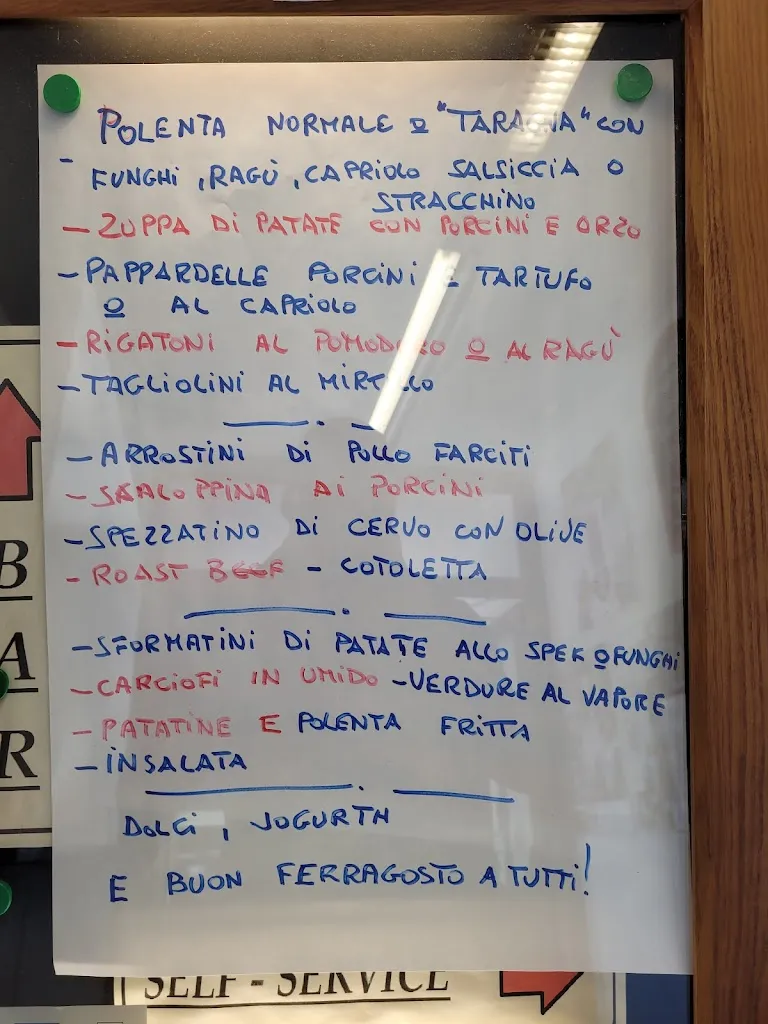 POLENTA NORMALE O "TARAGNA" CON
- FUNGHI, RAGÙ, CAPRIOLO SALSICCIA O
STRACCHINO
- ZUPPA DI PATATE CON PORCINI E ORZO
- PAPPARDELLE PORCINI E TARTUFO
O AL CAPRIOLO
- RIGATONI AL POMODORO O AL RAGÙ
- TAGLIOLINI AL MIRTILLO
- ARROSTINI DI POLLO FARCITI
- SKALOPPINA AI PORCINI
- SPEZZATINO DI CERVO CON OLIVE
- ROAST BEEF - COTOLETTA
- SFORMATINI DI PATATE ALLO SPEK O FUNGHI
- CARCIOFI IN UMIDO - VERDURE AL VAPORE
- PATATINE E POLENTA FRITTA
- INSALATA
DOLCI, JOGURTH
E BUON FERRAGOSTO A TUTTI!
B
A
R
SELF - SERVICE